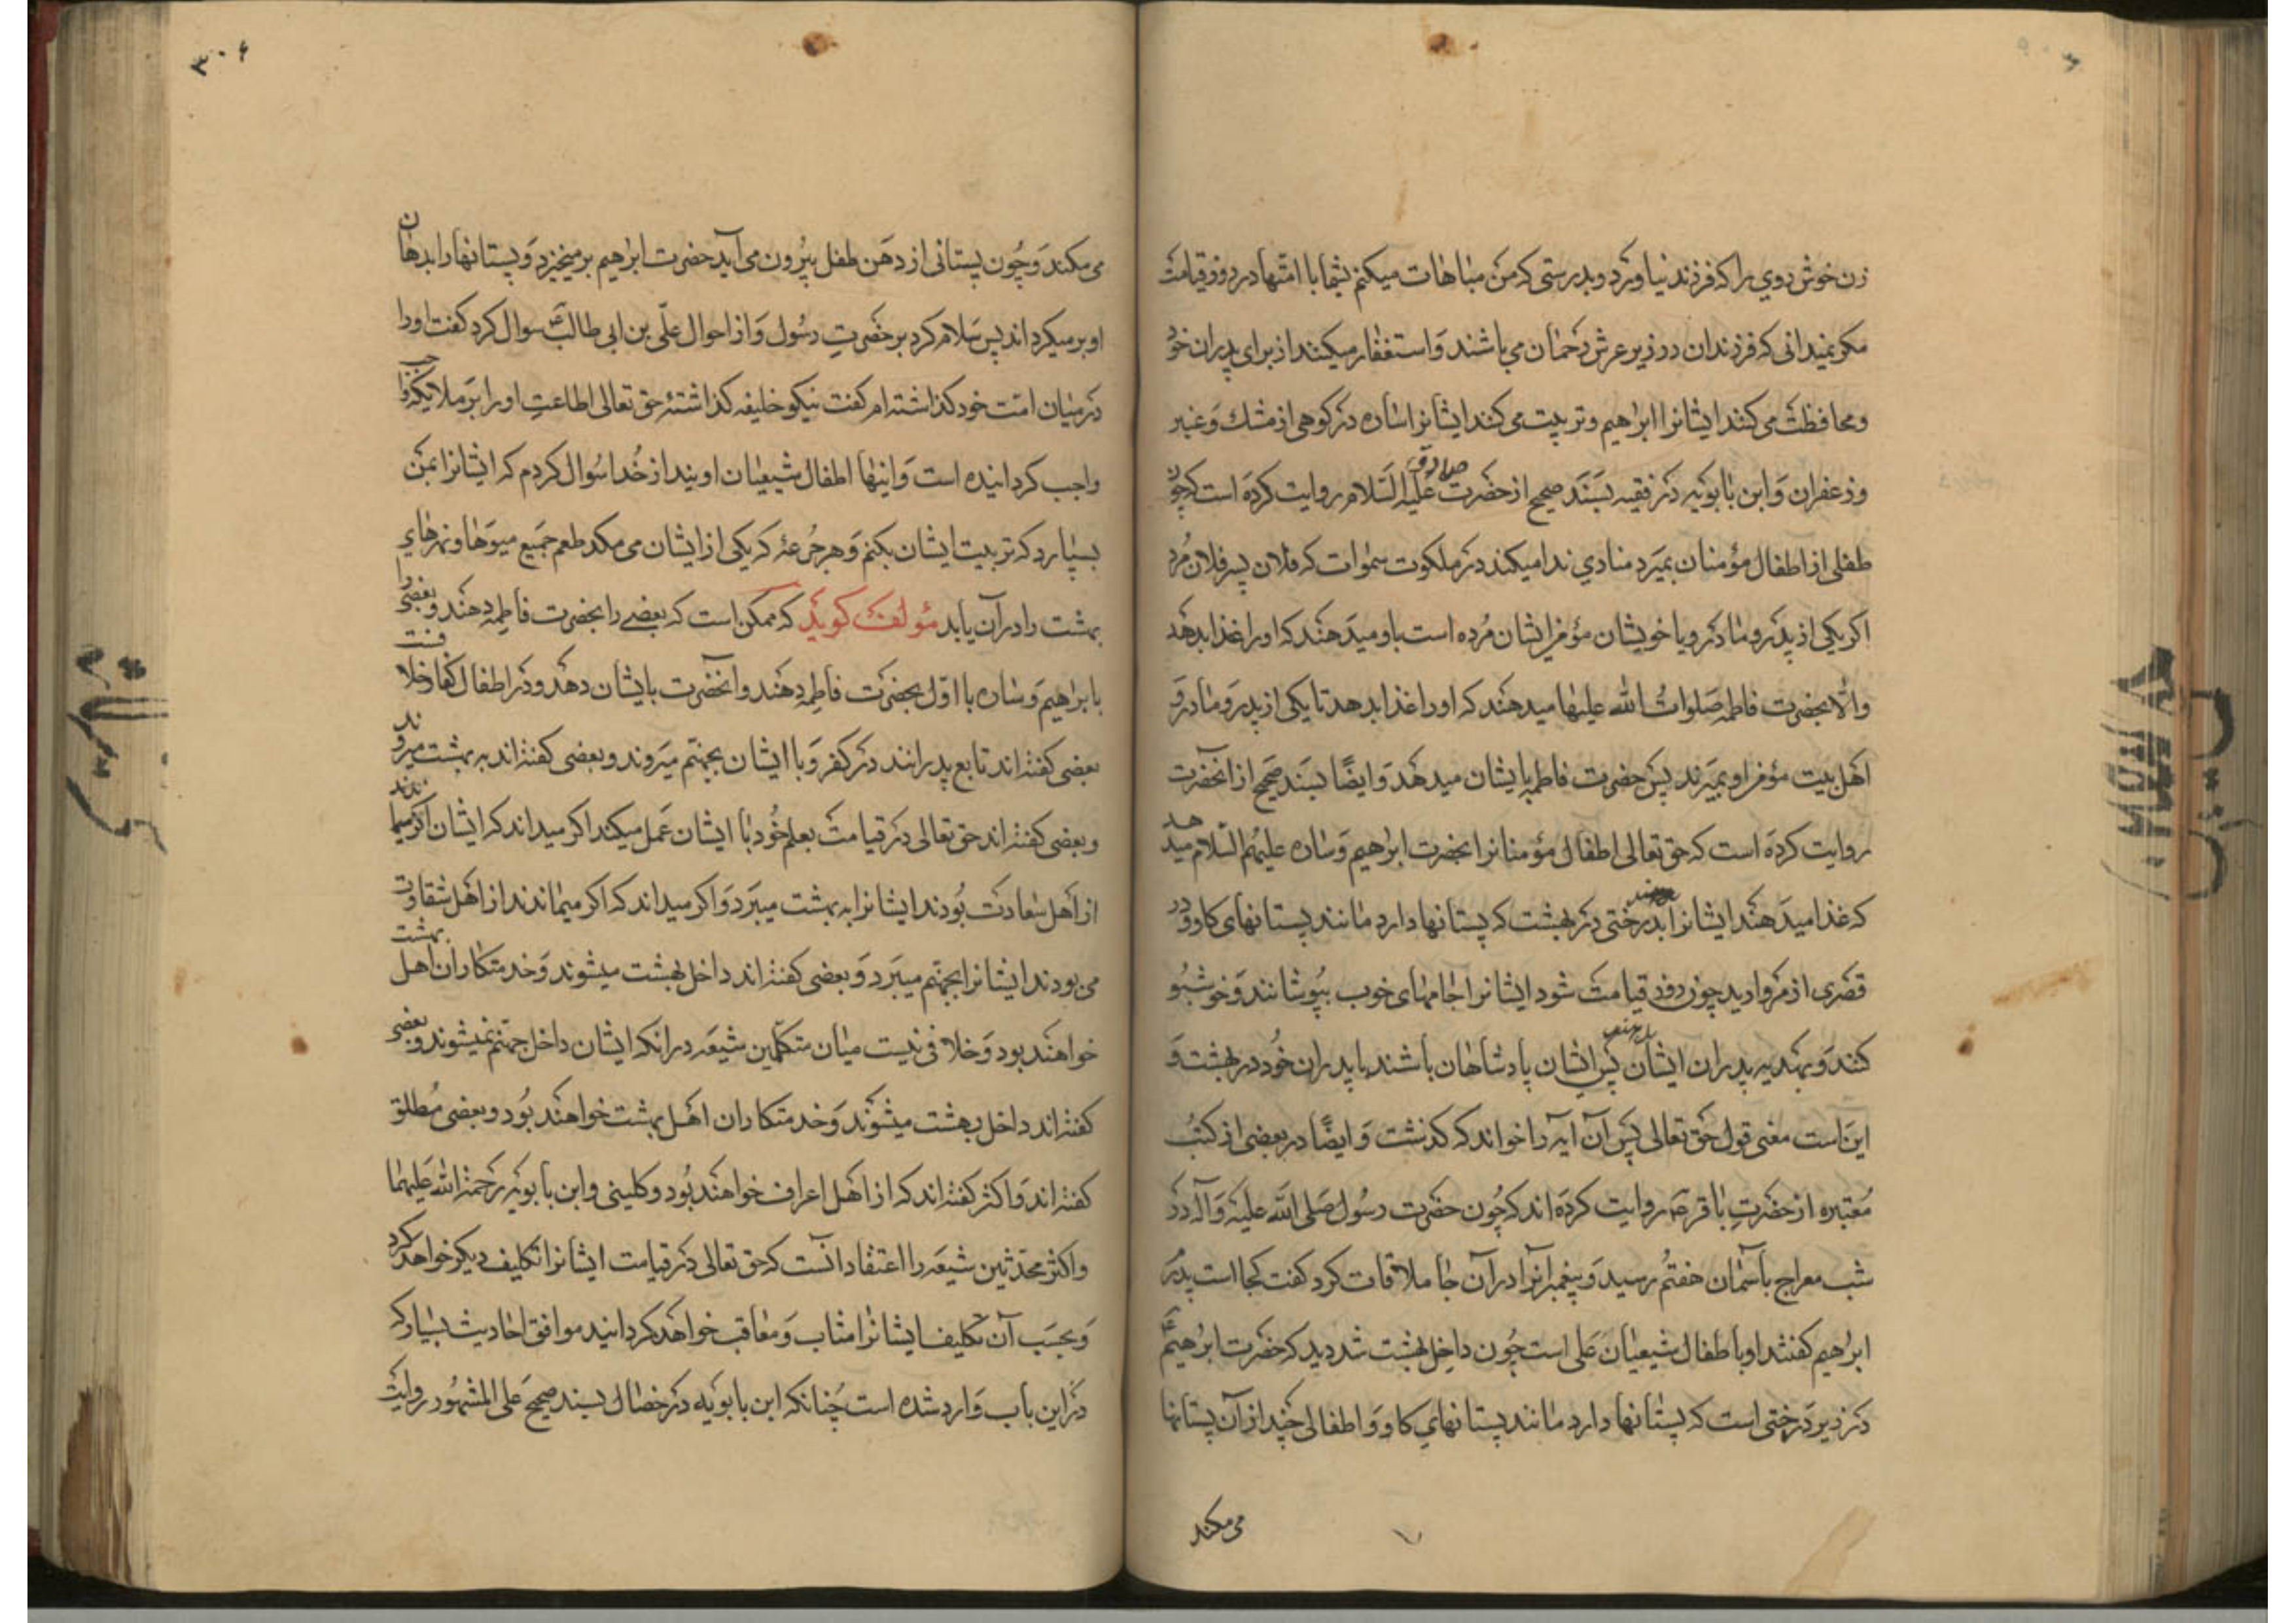 زن خوش روي را كه فرزند نياورد و بدرستى كه من مباهات ميكنم بشما با امتها در روز قيامت
مكر نميدانى كه فرزندان در زير عرش رحمان مى باشند و استغفار ميكنند از براى پدران خود
و محافظت مى كنند ايشانرا ابراهيم و تربيت مى كند ايشانرا ساره در كوهى از مشك و عنبر
و زعفران و ابن بابويه در فقيه بسند صحيح از حضرت صادق عليه السلام روايت كرده است كه چون
طفلى از اطفال مؤمنان بميرد منادي ندا ميكند در ملكوت سموات كه فلان پسر فلان مُرد
اكر يكى از پدر و مادر و يا خويشان مؤمن ايشان مُرده است باو ميدهند كه او را غذا بدهد
و الا بحضرت فاطمه صلوات الله عليها ميدهند كه او را غذا بدهد تا يكى از پدر و مادر و
اهل بيت مؤمن او بميرند پس حضرت فاطمه بايشان ميدهد و ايضًا بسند صحيح از انحضرت
روايت كرده است كه حق تعالى اطفال مؤمنانرا بحضرت ابراهيم و ساره عليهم السلام ميدهد
كه غذا ميدهند ايشانرا بدرختى در بهشت كه پستانها دارد مانند پستانهاى كاو و در
قصرى از مرواريد چون روز قيامت شود ايشانرا جامهاى خوب بپوشانند و خوشبو
كنند و بهديه پدران ايشان پس ايشان پادشاهان باشند با پدران خُود در بهشت و
اين است معنى قول حق تعالى پس آن آيه را خواند كه كذشت و ايضًا در بعضى از كتب
مُعتبره از حضرتِ باقر ع روايت كرده اند كه چُون حضرت رسُول صلى الله عليه و آله در
شب معراج باسمان هفتم رسيد و پيغمبرانرا در آن جا ملاقات كرد كفت كجا است پدرم
ابراهيم كفتند او با اطفال شيعيان على است چُون داخل بهشت شد ديد كه حضرت ابراهيم ع
در زير درختى است كه پستانها دارد مانند پستانهاي كاو و اطفالى چند از آن پستانها
مى مكند
٣٠٦
مى مكند و چُون پستانى از دهن طفل بيرون مى آيد حضرت ابراهيم برميخيزد و پستانها را بدهان
او برميكرداند پس سلام كرد بر حضرتِ رسُول و از احوال علّى بن ابى طالب ع سوال كرد كفت او را
در ميان امت خود كذاشته ام كفت نيكو خليفه كذاشتهٔ حق تعالى اطاعتِ او را بر ملايكه واجب
واجب كردانيده است و اينها اطفال شيعيان اويند از خُدا سُوال كردم كه ايشانرا بمن
بسپارد كه تربيت ايشان بكنم و هر جُرعهٔ كه يكى از ايشان مى مكد طعم جميع ميوها و نهرهاي
بهشت را در آن يابد مؤلف كويد كه ممكن است كه بعضے را بحضرت فاطمه دهند و بعضى را
بابراهيم و ساره يا اوّل بحضرت فاطمه دهند و انحضرت بايشان دهد و در اطفال كفار خلافست
بعضى كفته اند تابع پدرانند در كفر و با ايشان بجهنّم ميروند و بعضى كفته اند به بهشت ميروند
و بعضى كفته اند حق تعالى در قيامت بعلم خُود با ايشان عمل ميكند اكر ميداند كه ايشان اكر ميماندند
از اهل سعادت بُودند ايشانرا به بهشت ميبرد و اكر ميداند كه اكر ميماندند از اهل شقاوت
مى بودند ايشانرا بجهنّم ميبرد و بعضى كفته اند داخل بهشت ميشوند و خدمتكاران اهل بهشت
خواهند بود و خلافى نيست ميان متكلّمين شيعه در انكه ايشان داخل جهنّم نميشوند و بعضى
كفته اند داخل بهشت ميشوند و خدمتكاران اهل بهشت خواهند بُود و بعضى مُطلق
كفته اند و اكثر كفته اند كه از اهل اعراف خواهند بُود و كلينى و ابن بابويه رحمة الله عليهما
و اكثر محدّثين شيعه را اعتقاد آنست كه حق تعالى در قيامت ايشانرا تكليف ديكر خواهد كرد
و بحسب آن تكليف ايشانرا مثاب و معاقب خواهد كردانيد موافق احاديث بسيار كه
در اين باب وارد شده است چُنانكه ابن بابويه در خصال بسند صحيح على المشهُور روايت